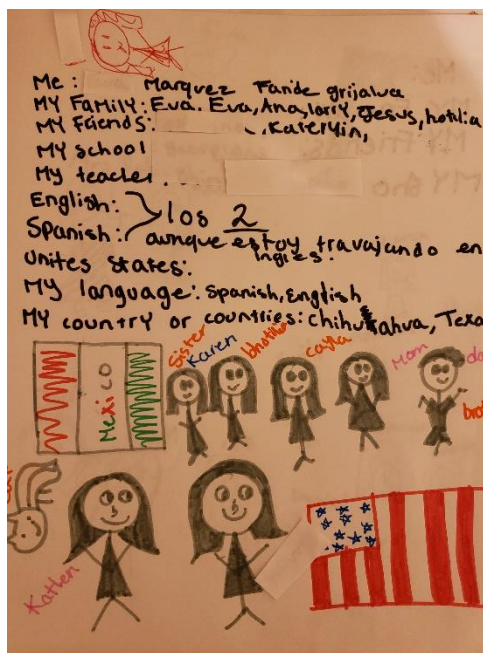 Me: Marquez Faride grijalva
MY FamiLY: Eva. Eva, Ana, larry, Jesus, hotilia
MY Friends: , Kateryin,
MY school
My teacher. . .
English:
Spanish: los 2
aunque estoy travajando en
Ingles.
Unites States:
MY language: Spanish, English
MY country or countries: Chihuahua, Texa
Mexico
Sister
Karen
cayla
Mom
da
brot
Katlen